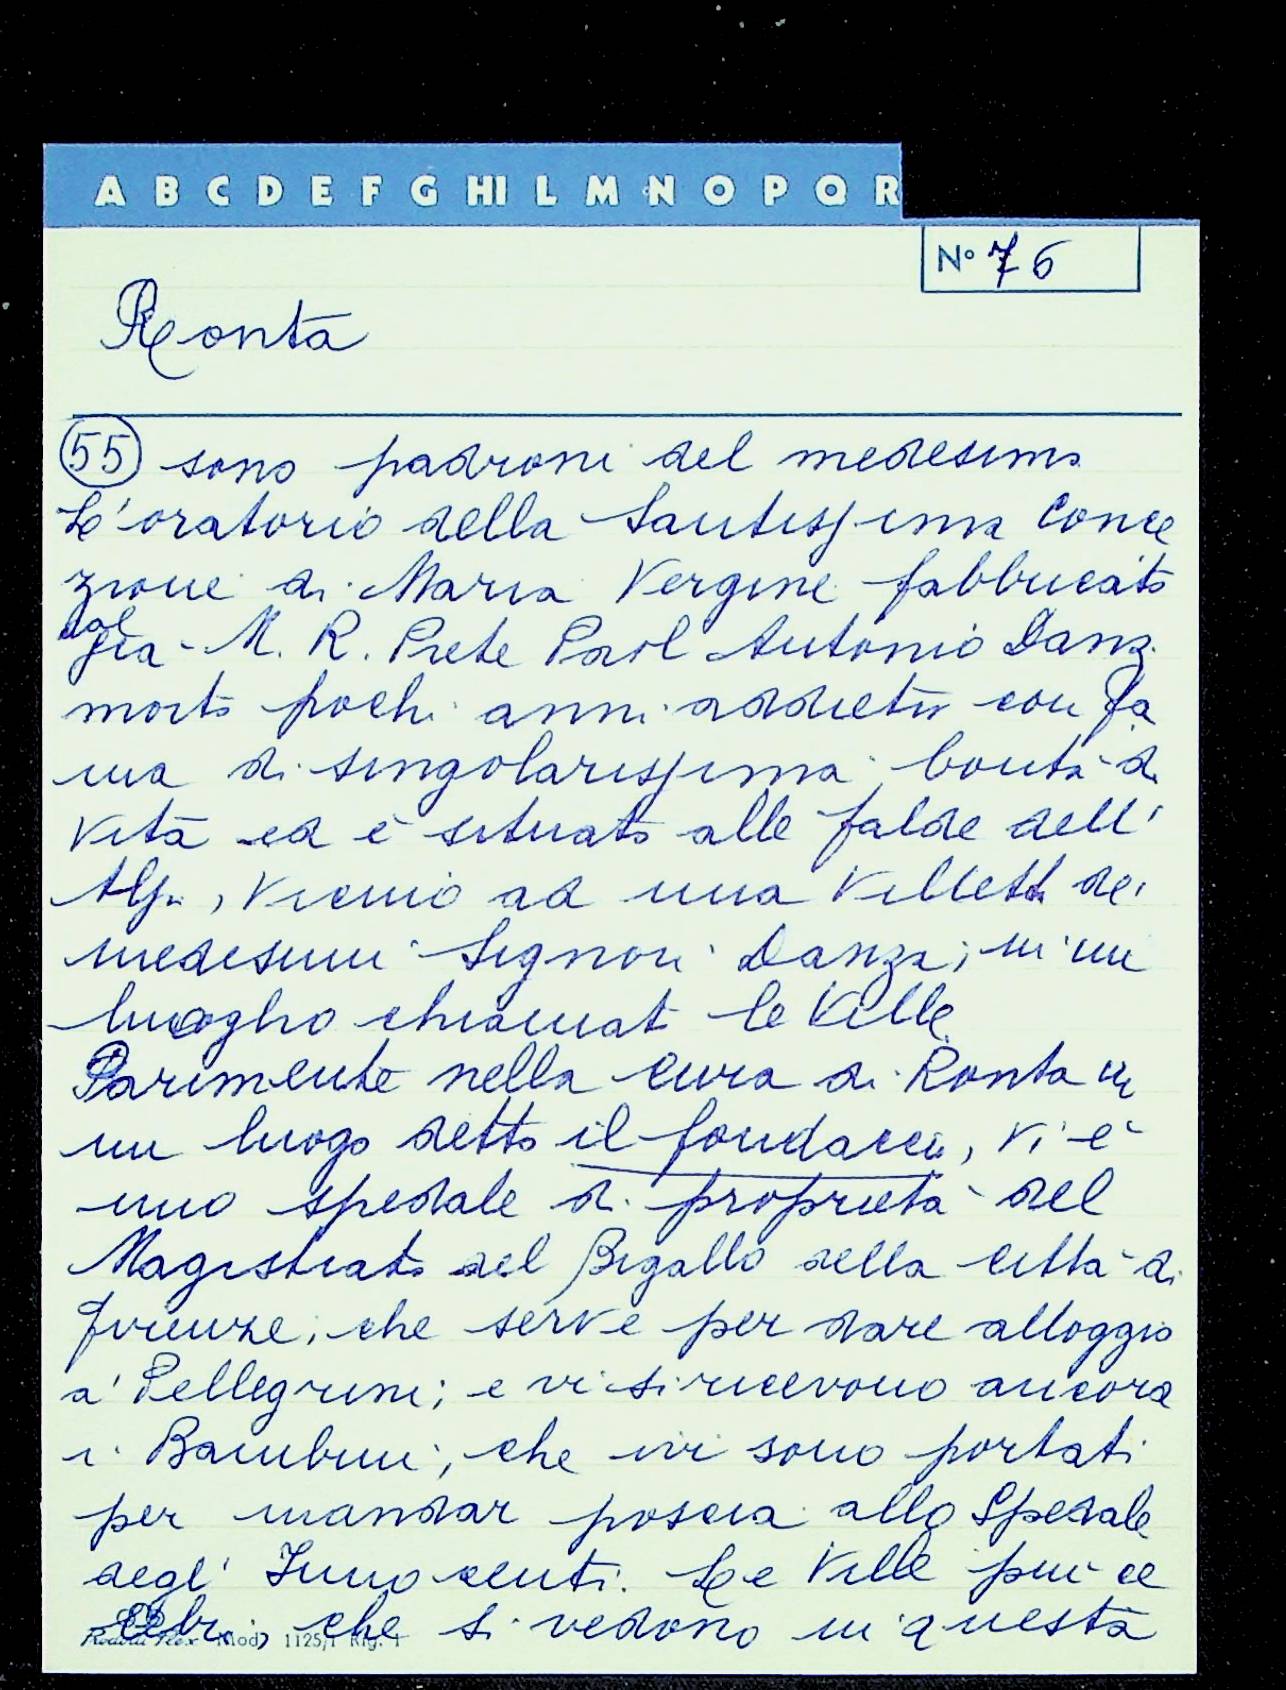 A B C D E F G HI L M N O P Q R
N° 76
Ronta
55 sono padroni del medesimo
L'oratorio della Santissima Conce
zione di Maria Vergine fabbricato
dal
già M. R. Prete Paol Antonio Danz.
morto pochi anni addietro con fa
ma di singolarissima bontà di
Vita ed è situato alle falde dell'
Alpi, Vicino ad una Villetta dei
medesimi Signori Danza; in un
luogho chiamato le Ville
Parimente nella cura di Ronta in
un luogo detto il fondaccio, vi è
uno spedale di proprietà del
Magistrato del Bigallo della città di
firenze, che serve per dare alloggio
a' Pellegrini; e vi si ricevono ancora
i Bambini, che ivi sono portati
per mandar poscia allo Spedale
degl' Innocenti. Le Ville più ce
lebri che si vedono in questa
Mod. 1125/1 Rig. 1